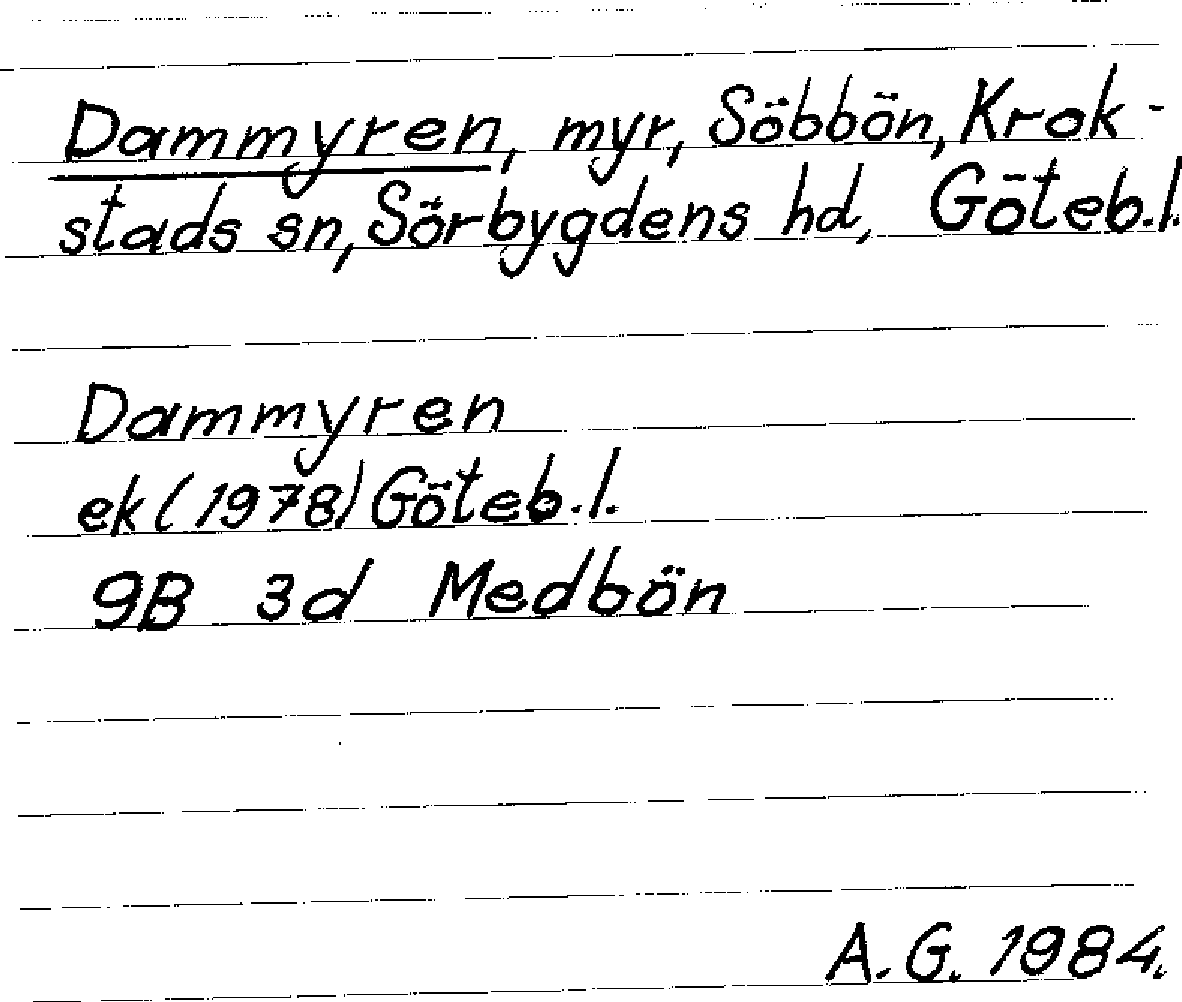 Dammyren, myr, Söbbön, Krok-
stads sn, Sörbygdens hd, Göteb.l.
Dammyren
ek (1978) Göteb.l.
9B 3d Medbön
A.G. 1984.